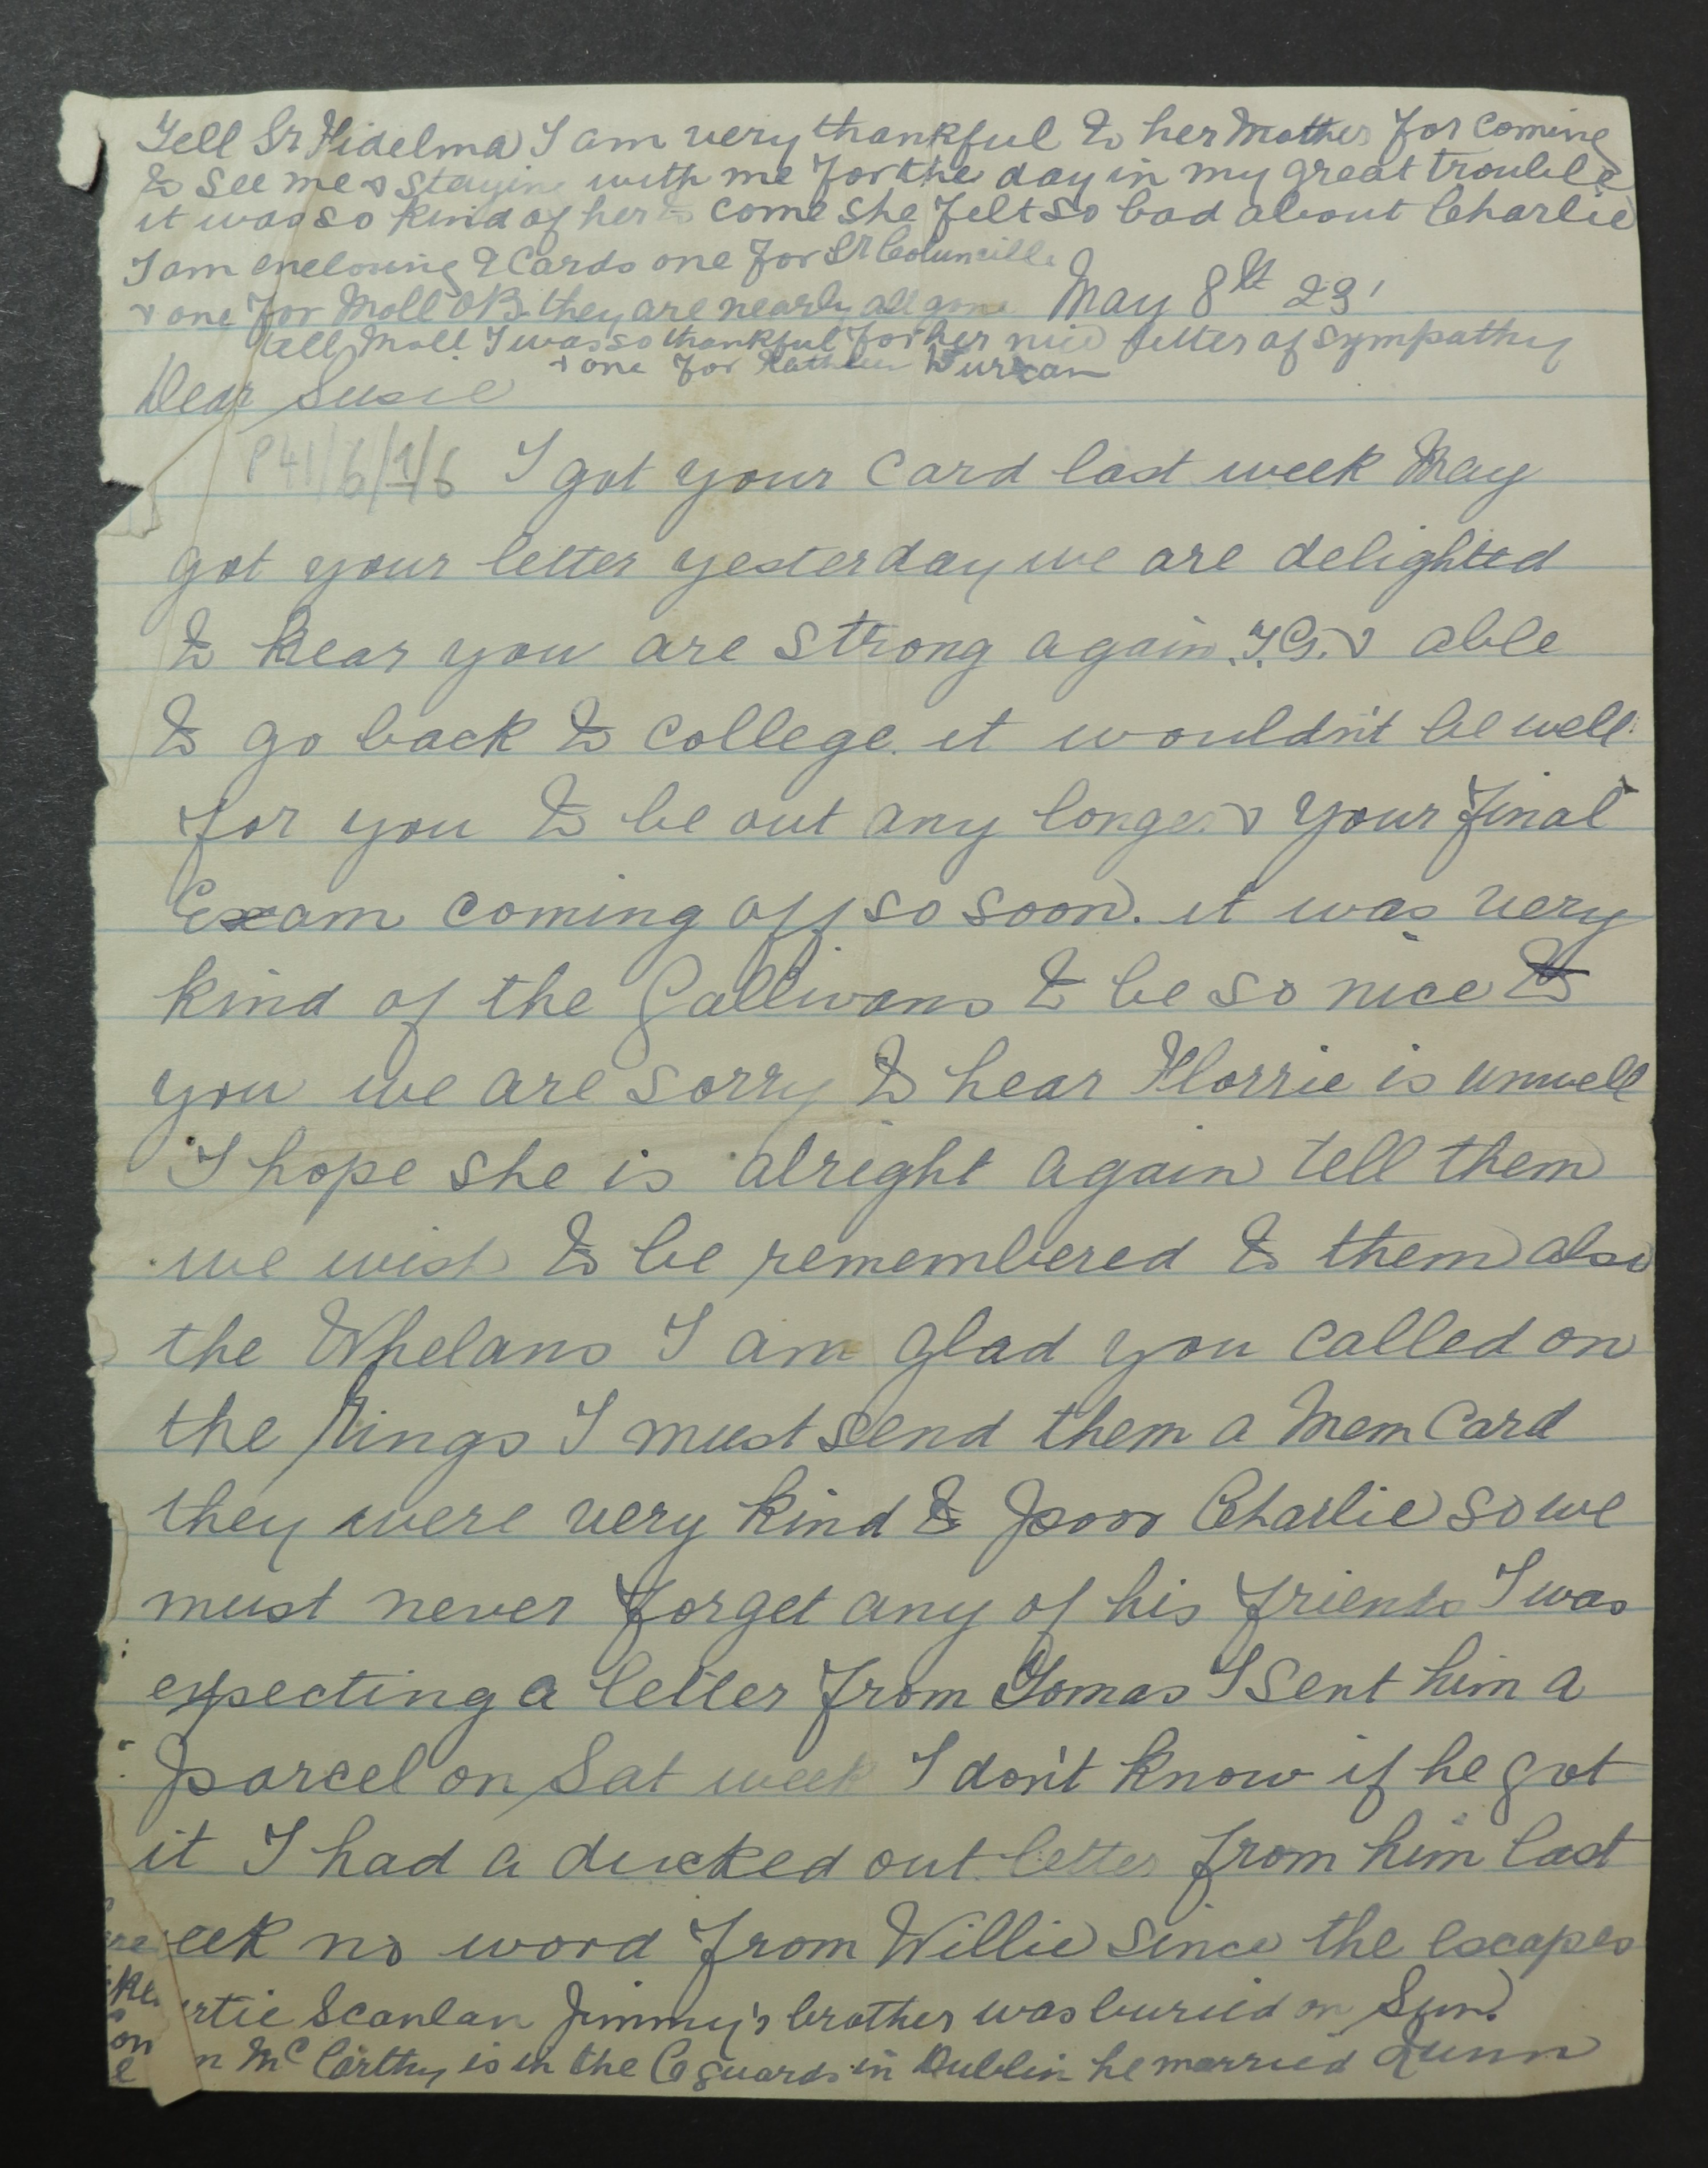 Tell Sr Fidelma I am very thankful to her Mother for coming
to see me & staying with me for the day in my great trouble
it was so kind of her to come she felt so bad about Charlie
I am enclosing 2 Cards one for Sr Columcille
& one for Moll OB. they are nearly all gone May 8th 23'
tell Moll I was so thankful for her nice letter of sympathy
& one for Kathleen Durcan
Dear Susie
P41/6/1/6 I got your Card last week May
got your letter yesterday we are delighted
to hear you are strong again T.G. & able
to go back to College. it wouldn't be well
for you to be out any longer & your final
Exam coming off so soon. it was very
kind of the Gallivans to be so nice to
you we are sorry to hear Florrie is unwell
I hope she is alright again tell them
we wish to be remembered to them also
the Whelans I am glad you called on
the Rings I must send them a Mem Card
they were very kind to poor Charlie so we
must never forget any of his friends I was
expecting a letter from Tomas I sent him a
parcel on Sat week I don't know if he got
it I had a ducked out letter from him last
eek no word from Willie since the escapes
rtie Scanlan Jimmy's brother was buried on Sun.
n McCarthy is in the C guards in Dublin he married Quinn
on
e